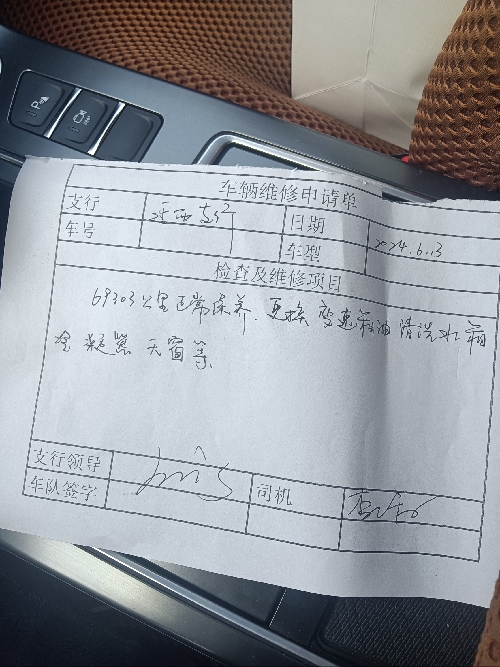 车辆维修申请单
支行 支行 日期 2024.6.13
车号 车型
检查及维修项目
69303公里正常保养.更换变速箱油清洗水箱
冷凝器 天窗等
支行领导
车队签字 司机